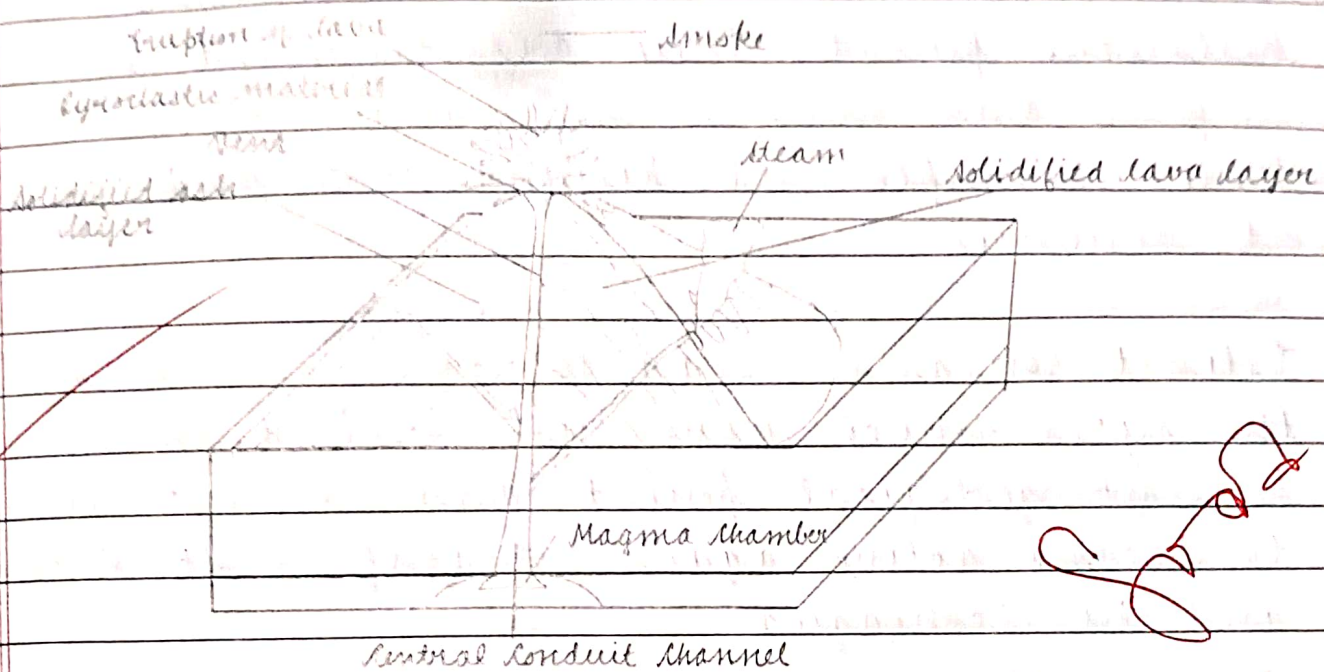 Eruption of lava
Smoke
Pyroclastic material
Vent
Steam
Solidified lava layer
Solidified ash
layer
Magma Chamber
Central Conduit Channel